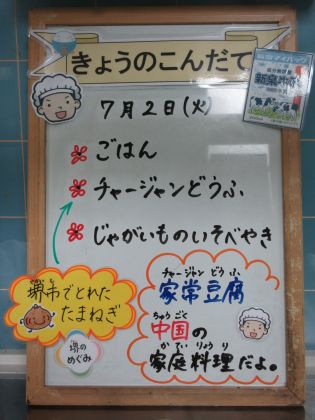 きょうのこんだて
7月2日(火)
ごはん
チャージャンどうふ
じゃがいものいそべやき
堺市でとれた
たまねぎ
堺の
めぐみ
チャージャン どう ふ
家常豆腐
ちゅう ごく
中国の
か てい りょう り
家庭料理だよ。